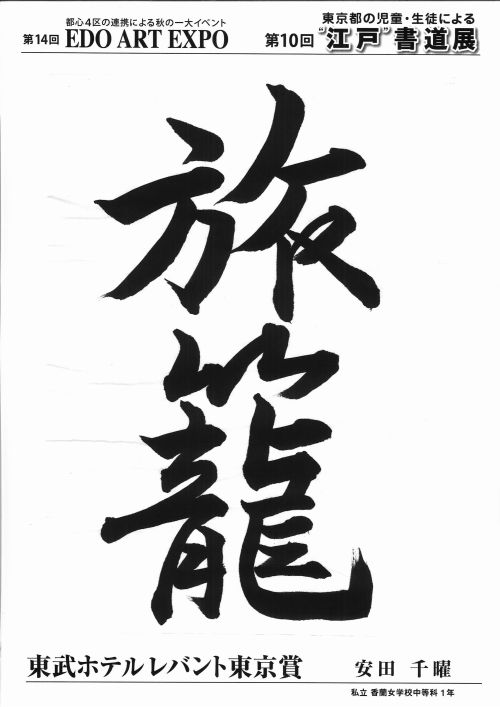 都心4区の連携による秋の一大イベント
第14回 EDO ART EXPO
東京都の児童・生徒による
第10回 "江戸"書道展
旅籠
東武ホテルレバント東京賞 安田 千曜
私立 香蘭女学校中等科1年